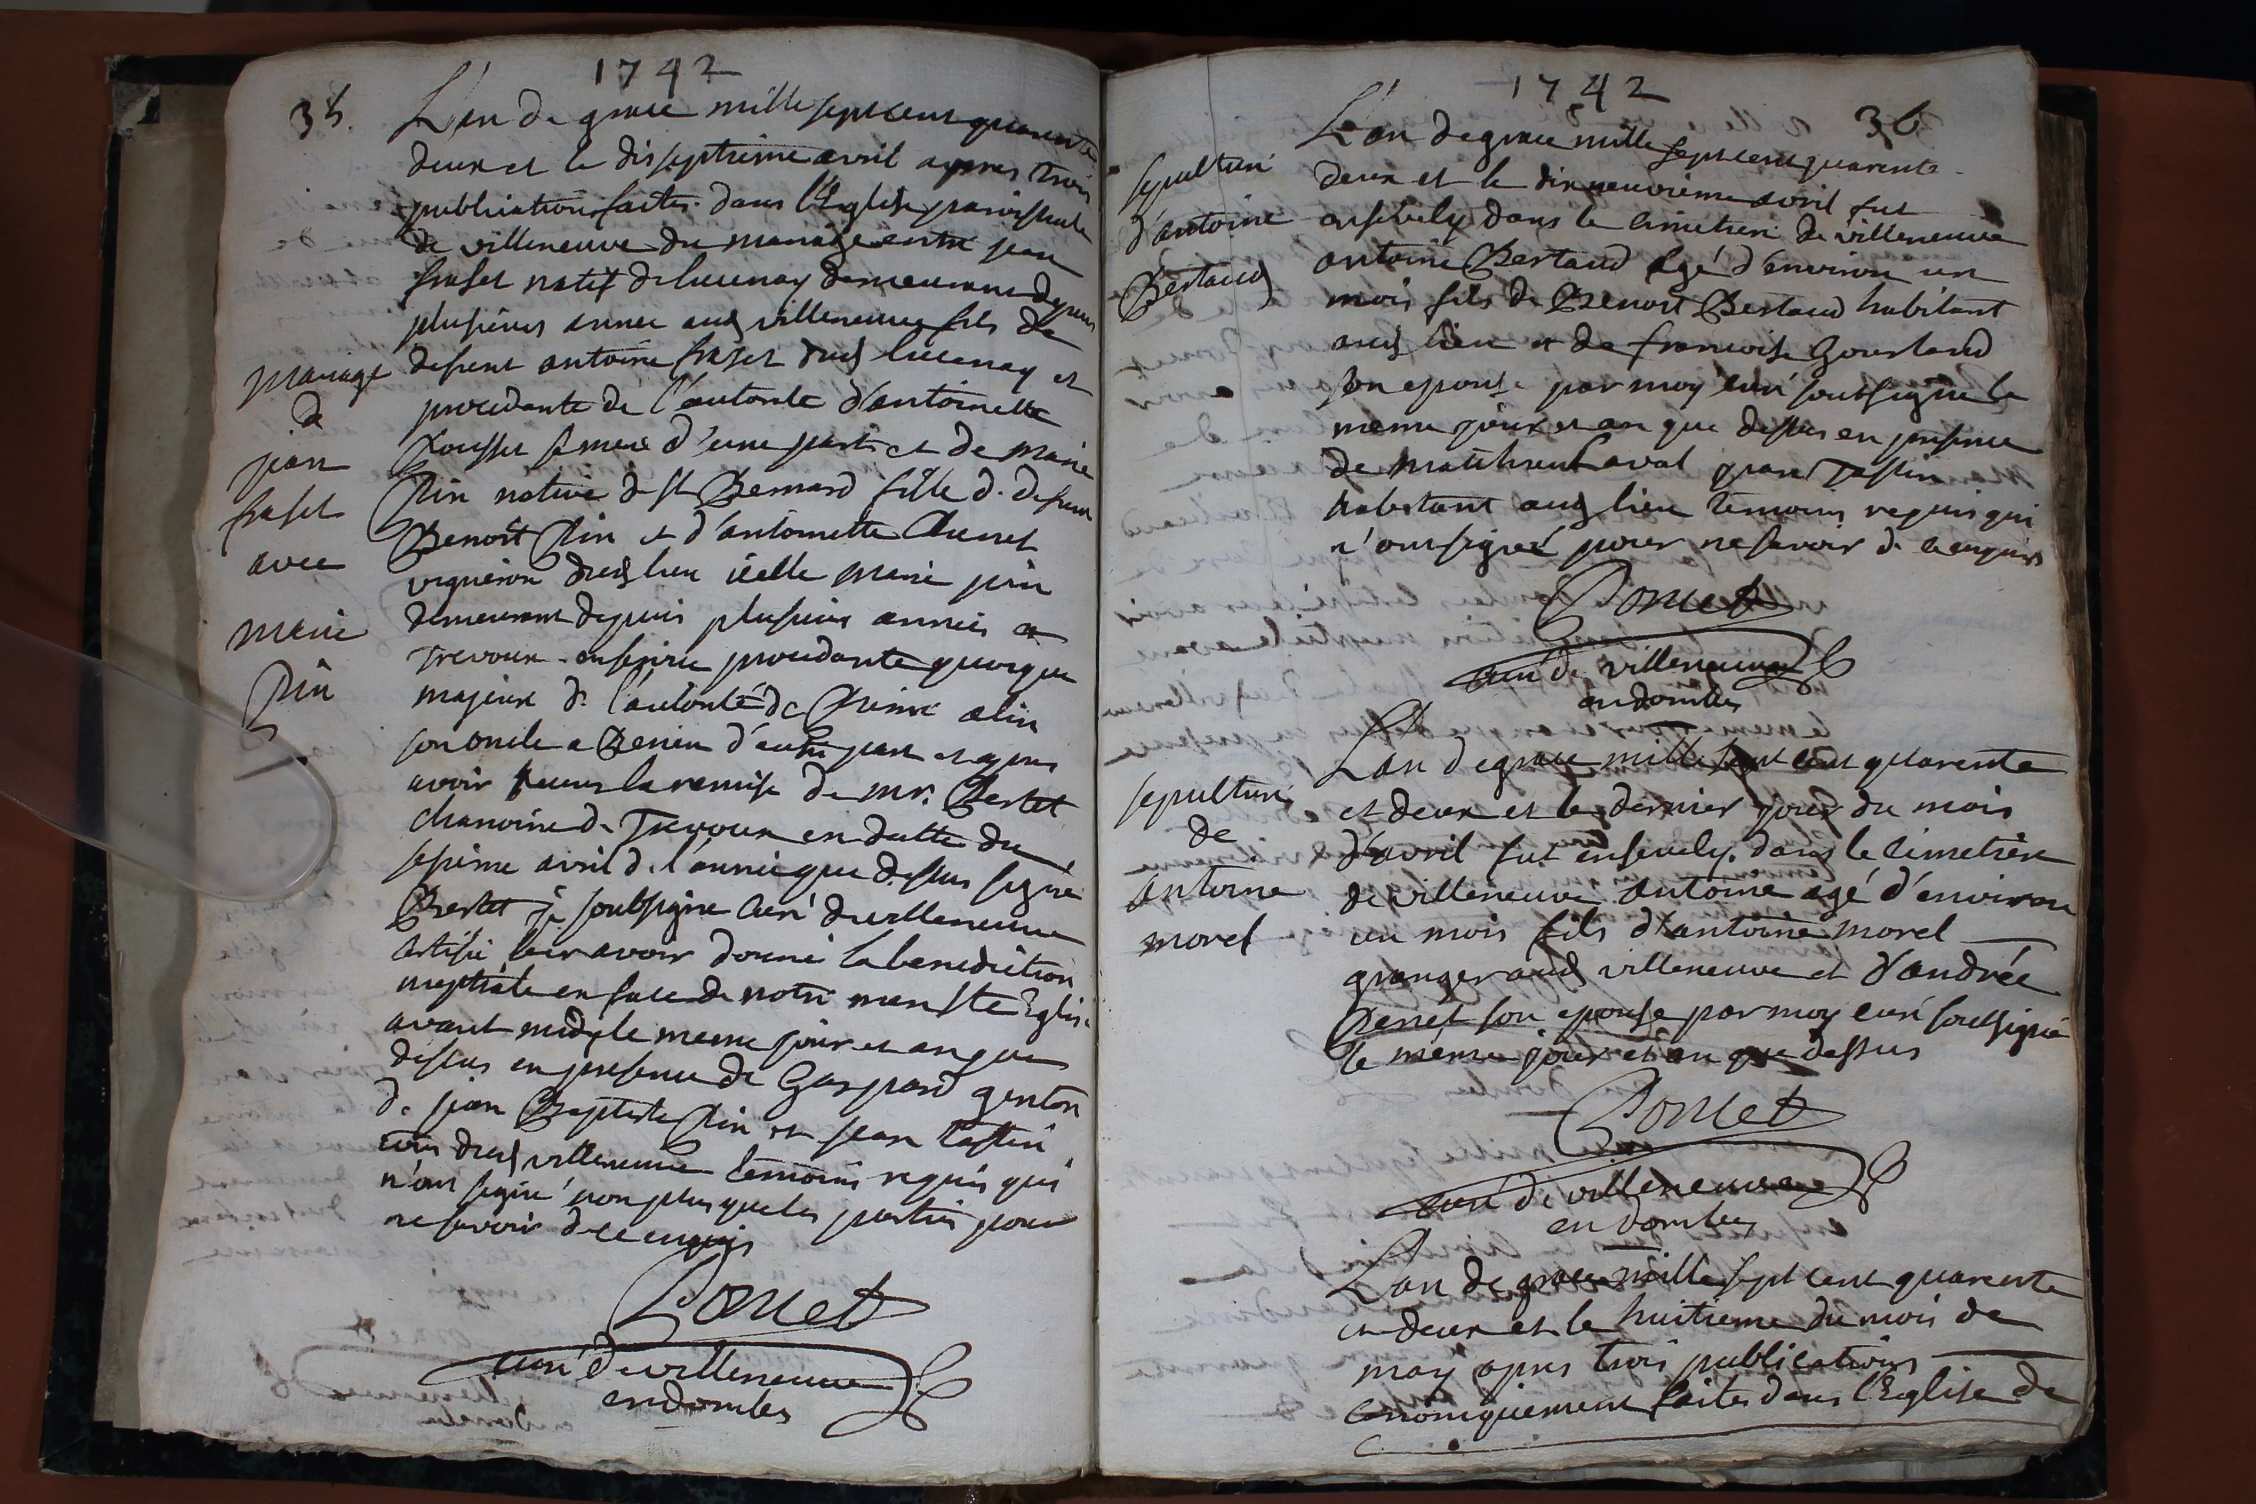 1742
35.
L'an de grace mille sept cent quarante
deux et le dis septieme avril apres trois
publications faites dans l'Eglise paroissiale
de villeneuve du mariage entre jean
fraset natif de lucenay demeurant depuis
plusieurs année aud villeneuve fils de
defunt antoine fraset dud lucenay et
procedante de l'autorité d'antoinette
Rousset sa mere d'une part et de marie
Pin native de st Bernard fille de defunt
Benoit Pin et d'antoinette
vigneron dud lieu icelle marie pin
demeurant depuis plusieurs années a
Trevoux ensuite procedante quoyque
majeure de l'autorité de Pierre
son oncle a d'autre part et apres
avoir receus la remise de mr. Bertet
chanoine de Trevoux en datte du
sepieme avril de l'année que dessus signé
Bertet je soubsigne curé de villeneuve
certifie leur avoir donné la benediction
nuptiale en face de notre mere ste Eglise
avant midy le meme jour et an que
dessus en presence de Gaspard genton
de jean Baptiste Pin et jean tassin
tous dud villeneuve temoins requis qui
n'ont signé non plus que les parties pour
ne savoir de ce enquis
Ponet
curé de villeneuve
en dombes
mariage
de
jean
fraset
avec
marie
Pin
1742
36
L'an de grace mille sept cent quarente
deux et le dix neuvieme avril fut
ensevely dans le cimetiere de villeneuve
antoine Bertaud agé d'environ un
mois fils de Benoit Bertaud habitant
aud lieu et de francoise Gourland
son epouse par moy curé soubsigné le
meme jour et an que dessus en presence
de mathieu Laval jean Tassin
habitant aud lieu temoins requis qui
n'ont signé pour ne savoir de ce enquis
Ponet
curé de villeneuve
en dombes
sepulture
d'antoine
Bertaud
L'an de grace mille sept cent quarente
et deux et le dernier jour du mois
d'avril fut ensevely dans le cimetiere
de villeneuve antoine agé d'environ
un mois fils d'antoine morel
granger aud villeneuve et d'andrée
Perret son epouse par moy curé soubsigné
le meme jour et an que dessus
Ponet
curé de villeneuve
en dombes
sepulture
de
antoine
morel
L'an de grace mille sept cent quarente
et deux et le huitieme du mois de
may apres trois publications
canoniquement faites dans l'Eglise de